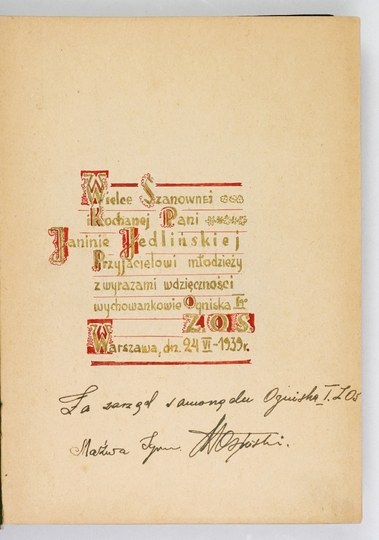 Wielce Szanownej
i Kochanej Pani
Janinie Jedlińskiej
Przyjacielowi młodzieży
z wyrazami wdzięczności
wychowankowie Ogniska
Z O S
Warszawa, dn. 24 VI - 1939 r.
Za zarząd samorządu Ogniska I. ZOS